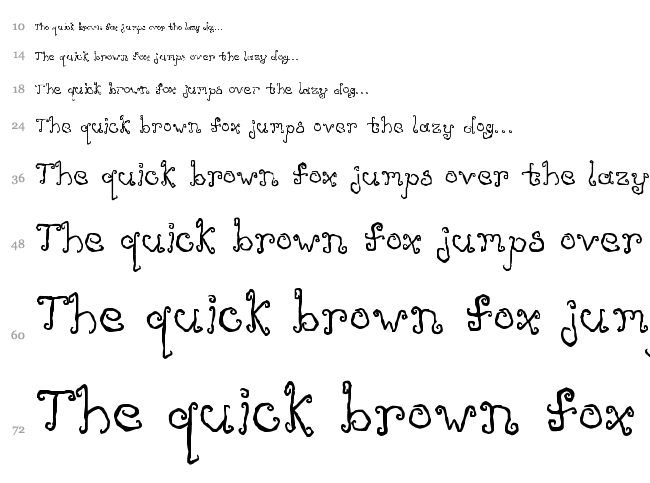 10 The quick brown fox jumps over the lazy dog...
14 The quick brown fox jumps over the lazy dog...
18 The quick brown fox jumps over the lazy dog...
24 The quick brown fox jumps over the lazy dog...
36 The quick brown fox jumps over the lazy
48 The quick brown fox jumps over
60 The quick brown fox jum
72 The quick brown fox